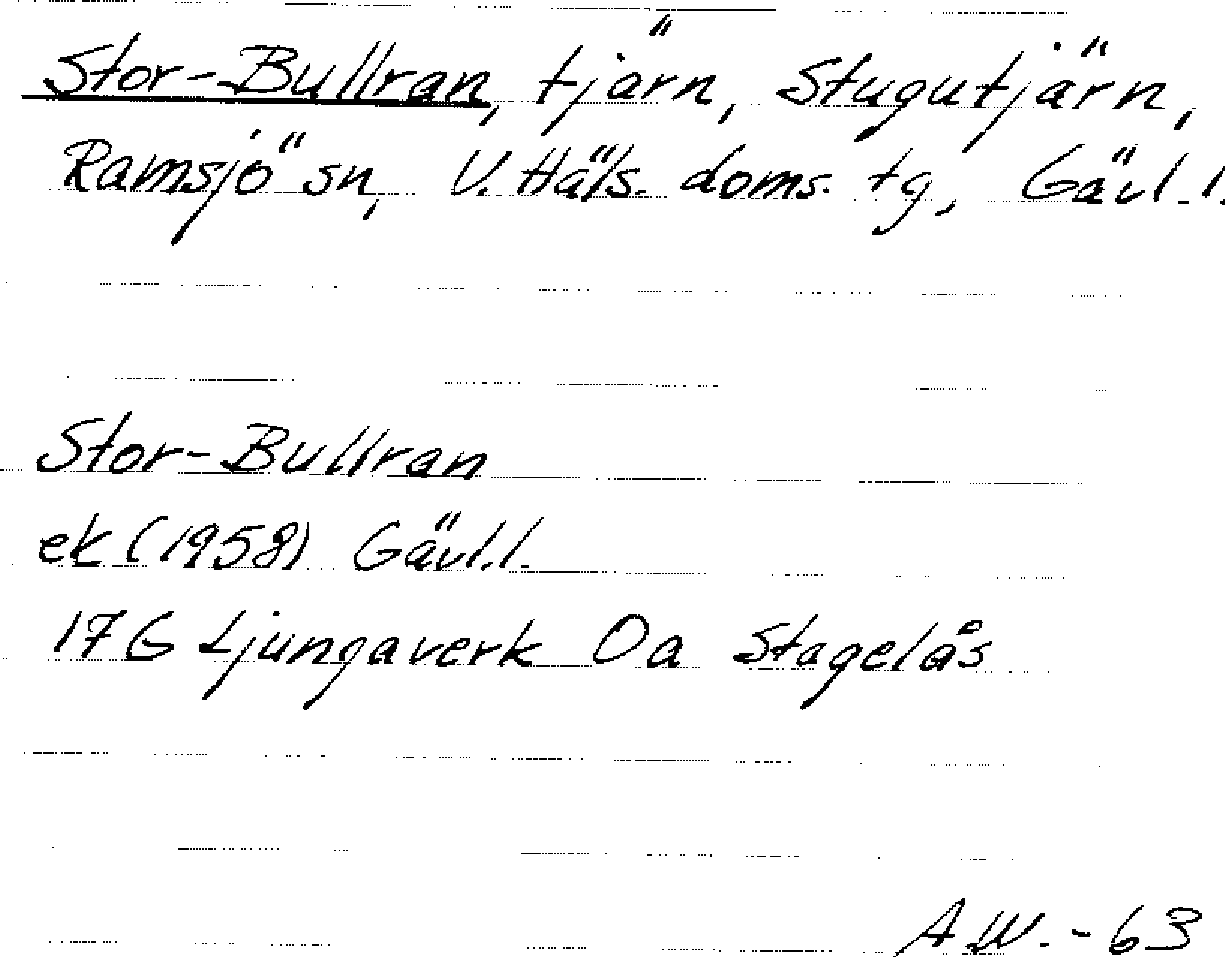 Stor-Bullran, tjärn, Stugutjärn,
Ramsjö sn, V. Häls. doms. tg, Gävl.l.
Stor-Bullran
ek (1958) Gävl.l.
17G Ljungaverk 0a Stagelås
A W. - 63